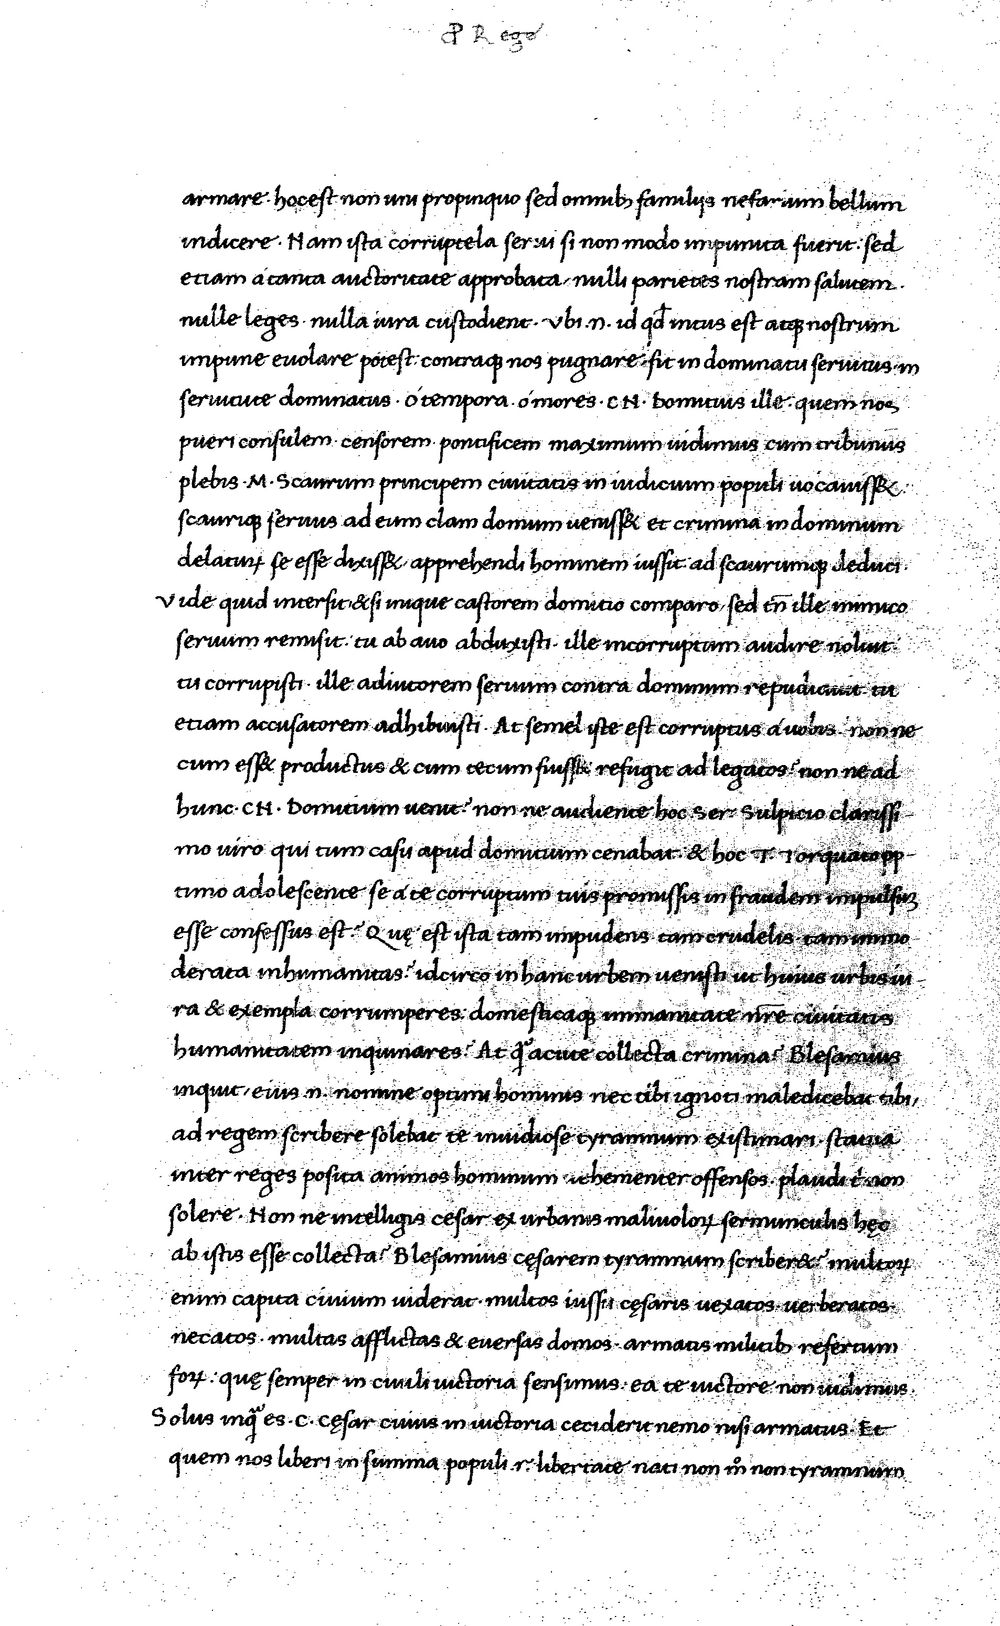 P Rege
armare · hoc est non uni propinquo sed omnibꝫ familijs nefarium bellum
indicere · Nam ista corruptela serui si non modo impunita fuerit: sed
etiam a tanta auctoritate approbata, nulli parietes nostram salutem ·
nulle leges · nulla iura custodient · Vbi · n · id qd̄ intus est atqꝫ nostrum
impune euolare potest: contraqꝫ nos pugnare · fit in dominatu seruitus · in
seruitute dominatus · ó tempora · ó mores · CN · Domitius ille · quem nos
pueri consulem · censorem · pontificem maximum uidimus cum tribunus
plebis · M · Scaurum principem ciuitatis in iudicium populi uocauiss& ·
scauriqꝫ seruus ad eum clam domum ueniss& et crimina in dominum
delaturꝝ se esse dixiss& · apprehendi hominem iussit · ad scaurumqꝫ deduci ·
Vide quid intersit, &si inique castorem domitio comparo, sed tn̄ ille inimico
seruum remisit · tu ab auo abduxisti · ille incorruptum audire noluit ·
tu corrupisti · ille adiutorem seruum contra dominum repudiauit · tu
etiam accusatorem adhibuisti · At semel iste est corruptus a uobis · non ne
cum ess& productus & cum tecum fuiss& refugit ad legatos? non ne ad
hunc · CN · Domitium uenit? non ne audiente hoc Ser · Sulpicio clarissi-
mo uiro qui tum casu apud domitium cenabat · & hoc · T · Torquato op-
timo adolescente se a te corruptum tuis promissis in fraudem impulsuꝫ
esse confessus est? Quę est ista tam impudens · tam crudelis · tam immo
derata inhumanitas? idcirco in hanc urbem uenisti ut huius urbis iu-
ra & exempla corrumperes: domesticaqꝫ immanitate nr̄e ciuitatis
humanitatem inquinares? At q̄ acute collecta crimina? Blesamius
inquit, eius · n · nomine optimi hominis nec tibi ignoti maledicebat tibi,
ad regem scribere solebat te inuidiose tyrannum existimari · statua
inter reges posita animos hominum uehementer offensos · plaudi t̄ non
solere · Non ne intelligis cesar ex urbanis maliuoloꝝ sermunculis hęc
ab istis esse collecta? Blesamius cęsarem tyrannum scriber&? multoꝝ
enim capita ciuium uiderat · multos iussu cęsaris uexatos · uerberatos ·
necatos · multas afflictas & euersas domos · armatis militibꝫ refertum
foꝝ: quę semper in ciuili uictoria sensimus · ea te uictore non uidimus ·
Solus inq̄ es · C · Cęsar cuius in uictoria ceciderit nemo nisi armatus · Et
quem nos liberi in summa populi · r · libertate nati non m̊ non tyrannum